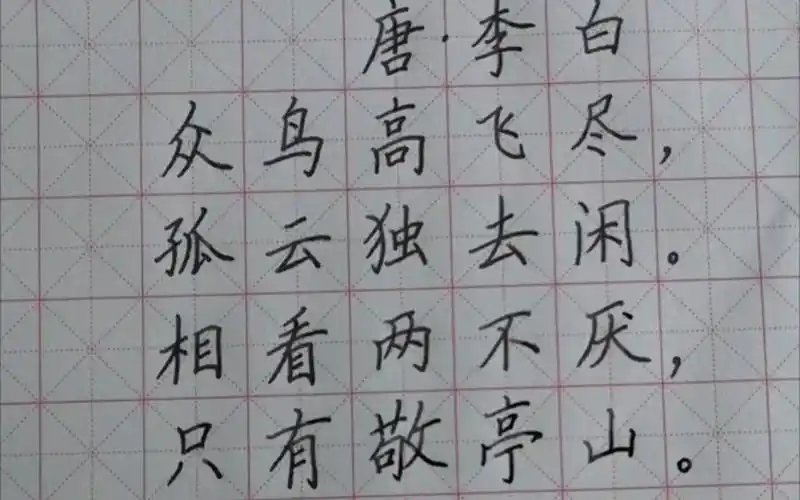 唐·李白
众鸟高飞尽，
孤云独去闲。
相看两不厌，
只有敬亭山。